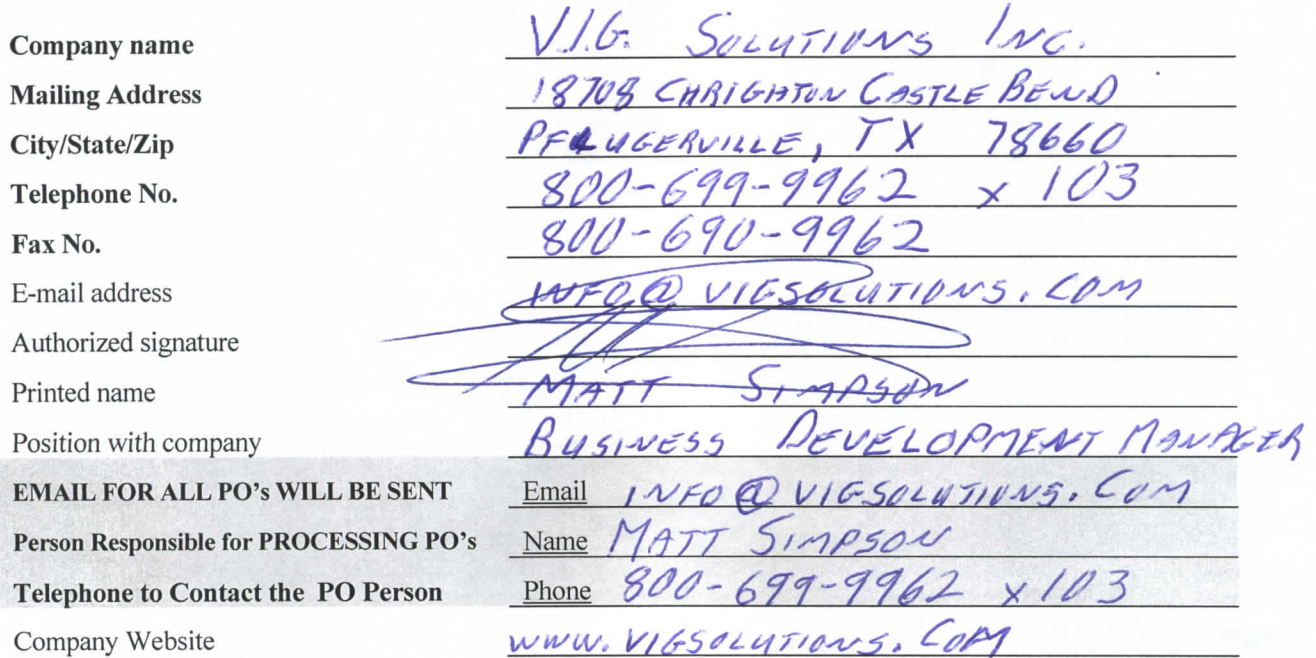 Company name V.I.G. SOLUTIONS INC.
Mailing Address 18708 CHRIGHTON CASTLE BEND
City/State/Zip PFLUGERVILLE, TX 78660
Telephone No. 800-699-9962 x 103
Fax No. 800-690-9962
E-mail address INFO@VIGSOLUTIONS.COM
Authorized signature
Printed name MATT SIMPSON
Position with company BUSINESS DEVELOPMENT MANAGER
EMAIL FOR ALL PO's WILL BE SENT Email INFO@VIGSOLUTIONS.COM
Person Responsible for PROCESSING PO's Name MATT SIMPSON
Telephone to Contact the PO Person Phone 800-699-9962 x103
Company Website www.VIGSOLUTIONS.COM